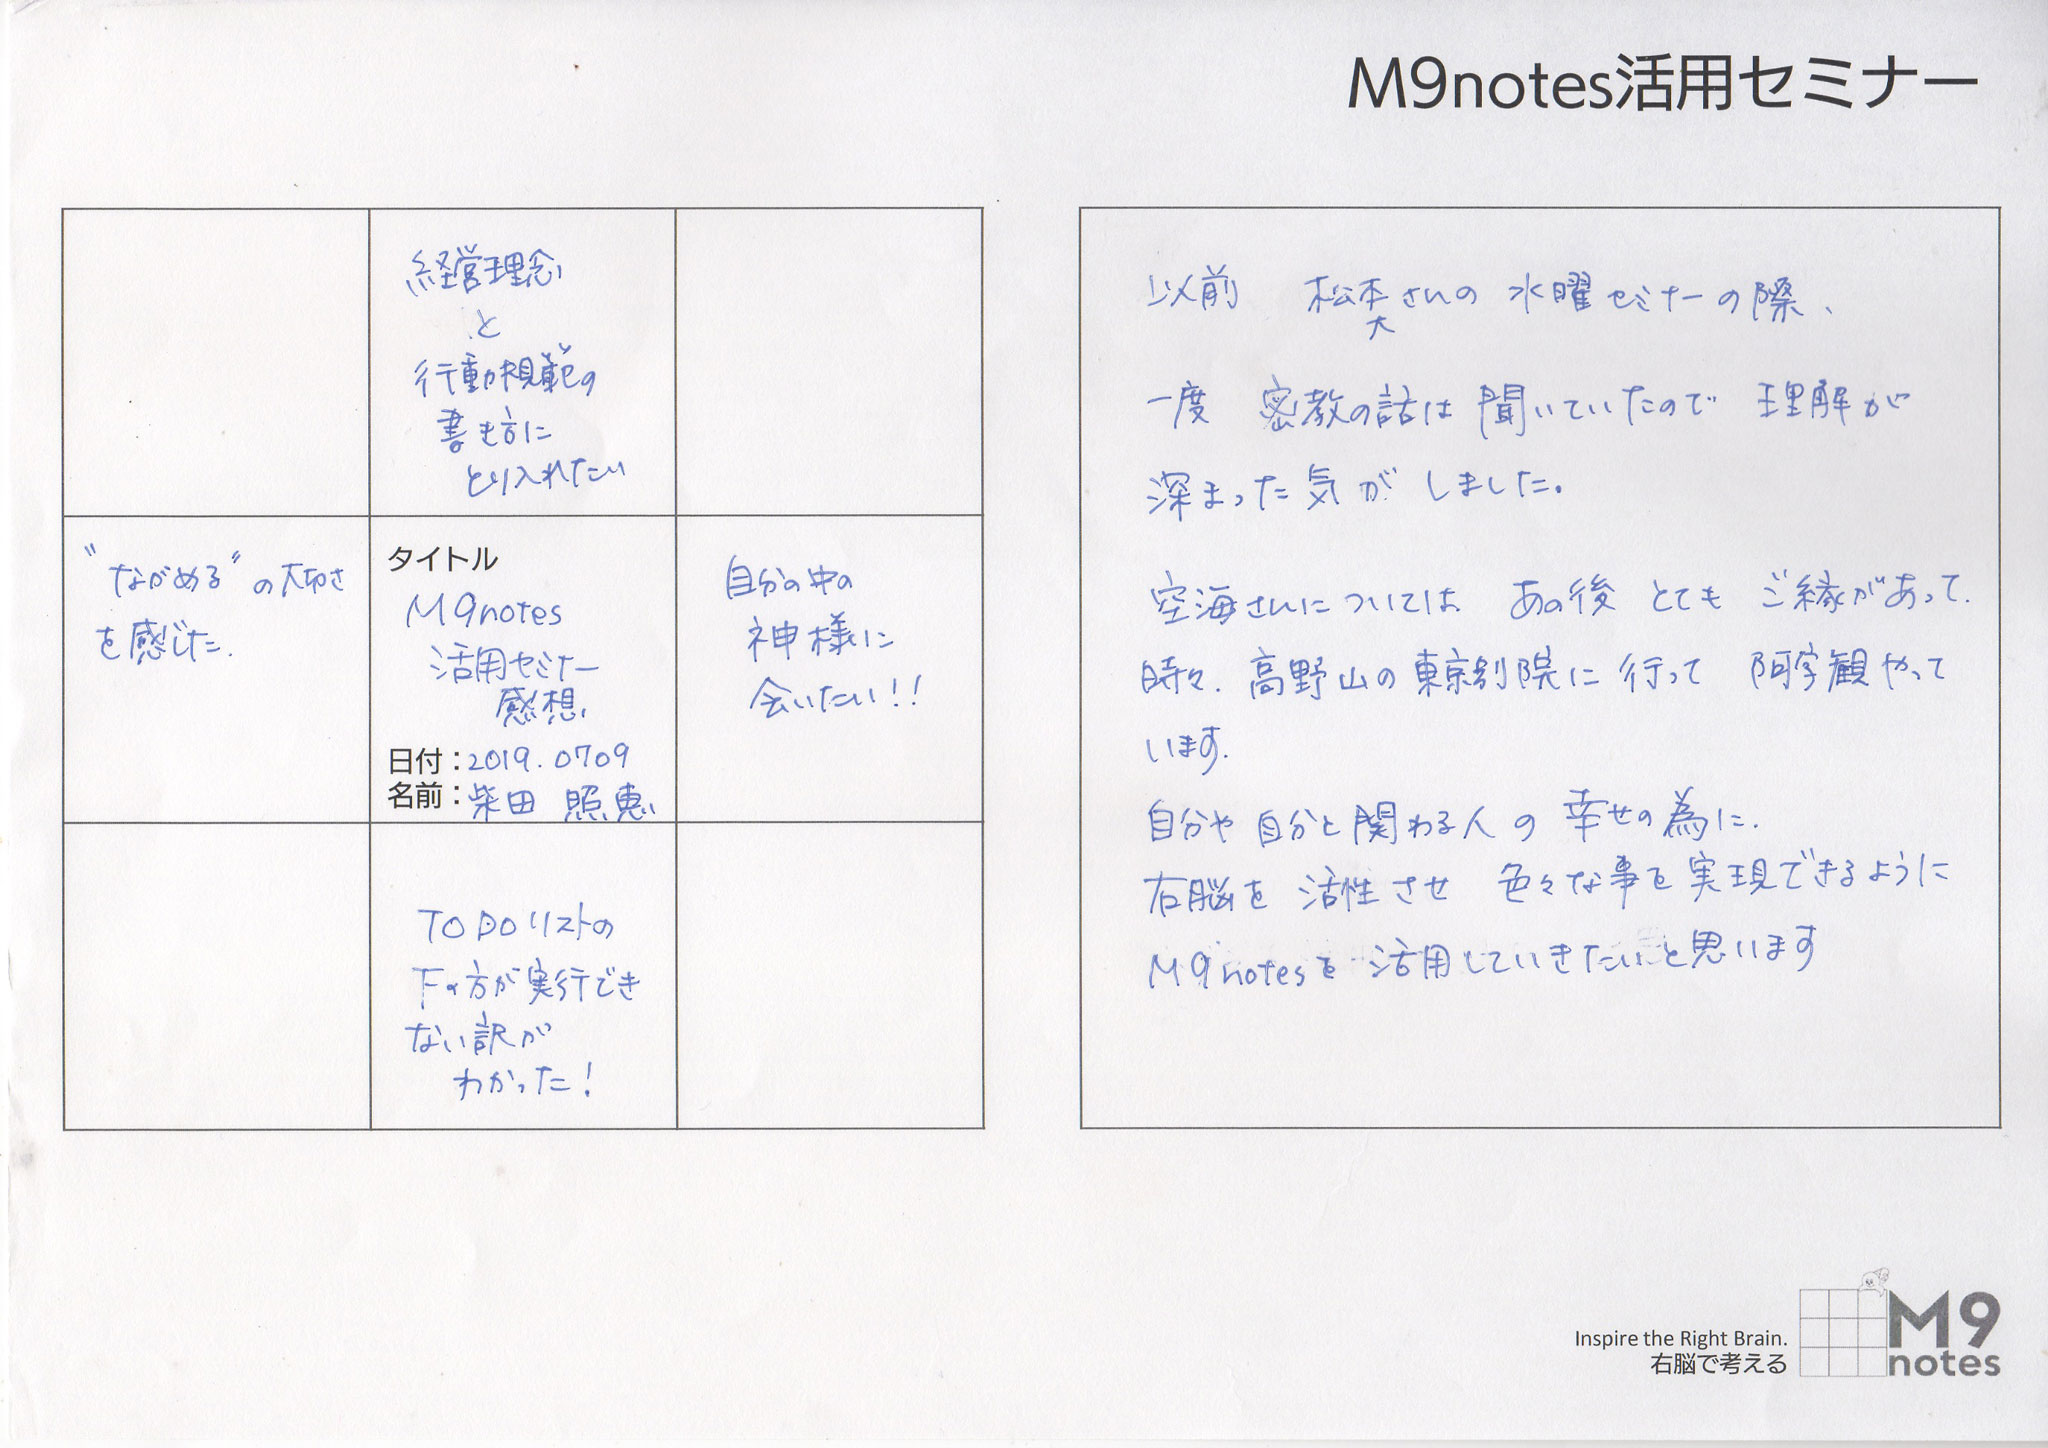 M9notes活用セミナー
経営理念
と
行動規範の
書き方に
とり入れたい
"ながめる"の大切さ
を感じた.
タイトル
M9notes
活用セミナー
感想
日付：2019.0709
名前：柴田 照恵
自分の中の
神様に
会いたい!!
TO DOリストの
下の方が実行でき
ない訳が
わかった!
以前 松本さんの 水曜セミナーの際、
大
一度 密教の話は 聞いていたので 理解が
深まった 気が しました。
空海さんについては あの後 とても ご縁があって.
時々. 高野山の東京別院に 行って 阿字観やって
います.
自分や 自分と関わる人の 幸せの為に.
右脳を 活性させ 色々な事を実現できるように
M9notesを 活用していきたいと思います
Inspire the Right Brain.
右脳で考える
M9
notes